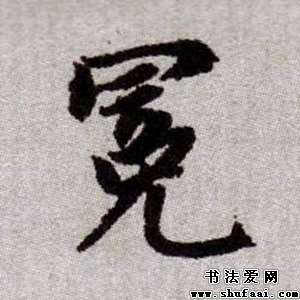 冕
书法爱网
www.shufaai.com